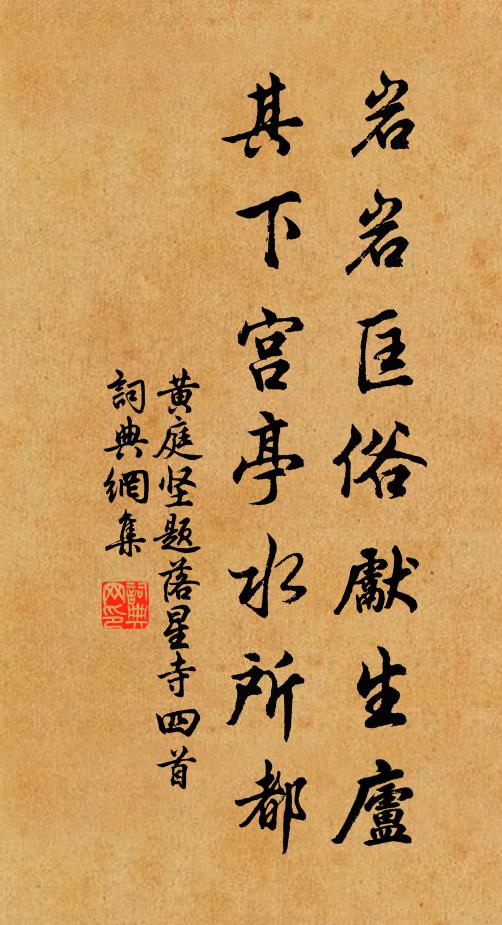 岩岩匡俗獻生廬
其下宫亭水所都
黄庭坚题落星寺四首
詞典網集
詞典网印